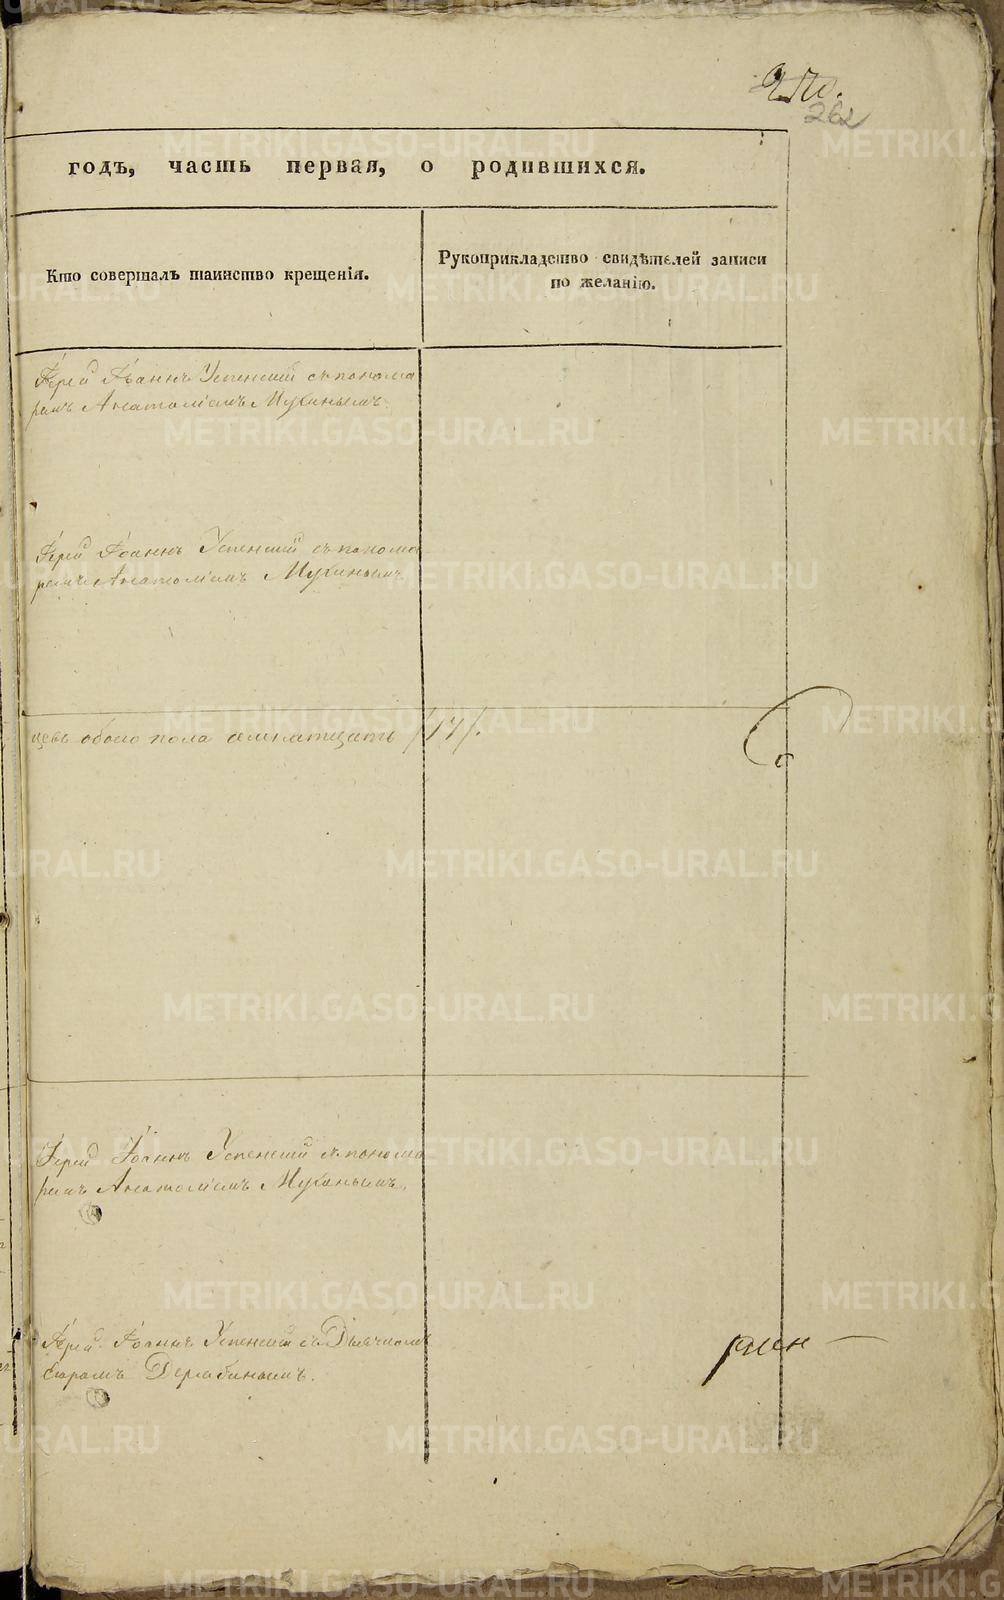 262
годъ, часть первая, о родившихся.
Кто совершалъ таинство крещенія.
Рукоприкладство свидѣтелей записи
по желанію.
Іерей Іоаннъ Успенскій съ понома
ремъ Анатоліемъ Мукинымъ.
Іерей Іоаннъ Успенскій съ понома
ремъ Анатоліемъ Мукинымъ.
цевъ обоего пола
Іерей Іоаннъ Успенскій съ понома
ремъ Анатоліемъ Мукинымъ.
Іерей Іоаннъ Успенскій съ Дьячкомъ
Дерябинымъ.
METRIKI.GASO-URAL.RU